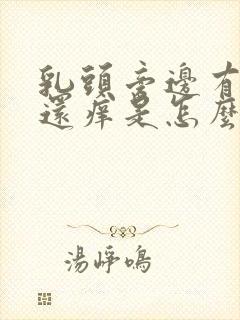 乳頭旁邊有
還痒是怎麼
湯崢鳴